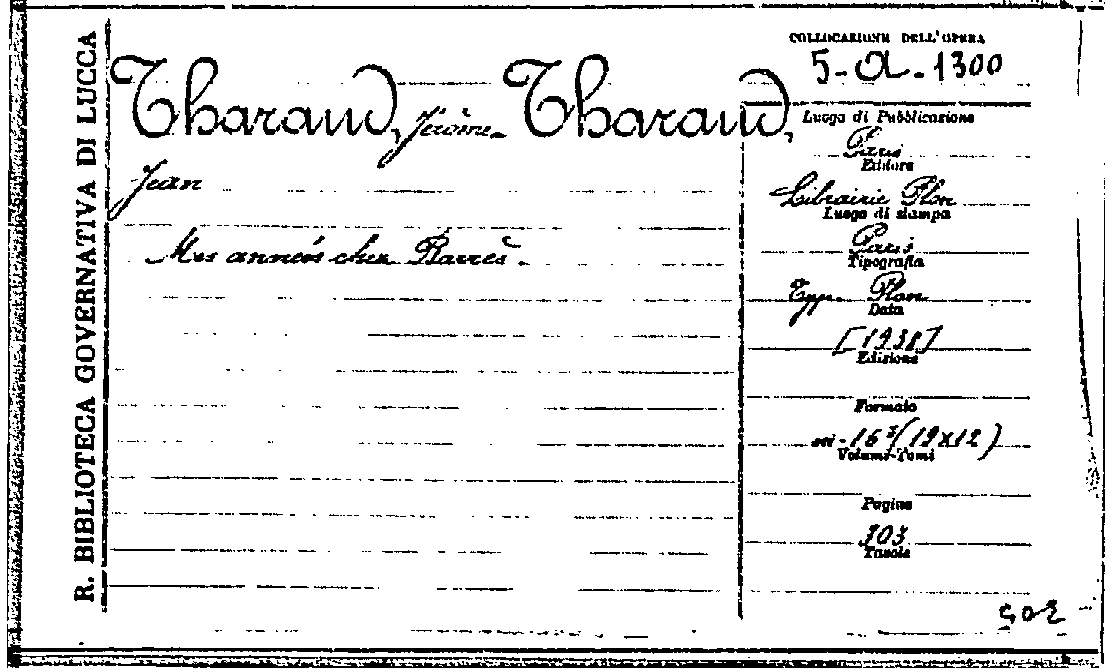 R. BIBLIOTECA GOVERNATIVA DI LUCCA
COLLOCAZIONE DELL'OPERA
5-A-1300
Tharaud, Jérôme - Tharaud,
Jean
Mes années chez Barrès.
Luogo di Pubblicazione
Paris
Editore
Librairie Plon
Luogo di stampa
Paris
Tipografia
Typ. Plon
Data
[1938]
Edizione
Formato
in-16° (19x12)
Volumi-Tomi
Pagine
303
Tavole